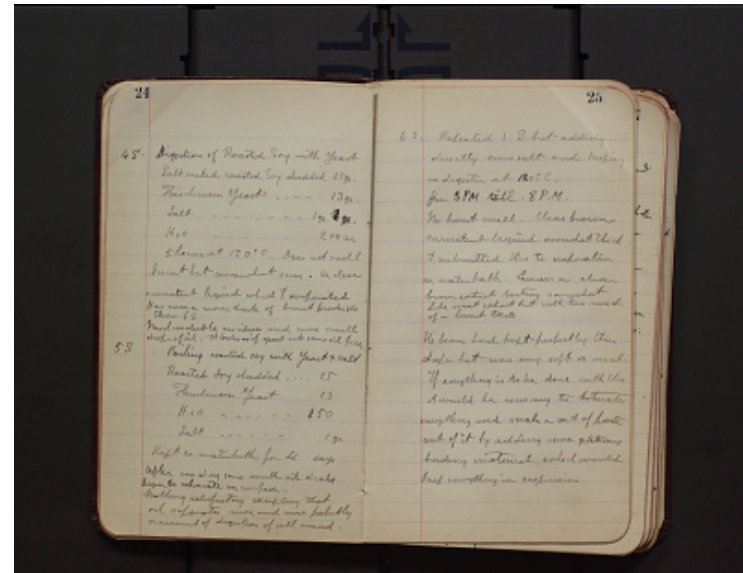 24
4S- Digestion of Roasted Soy with Yeast
Salt coated roasted Soy shudded 25 gr.
Fleischmann Yeast .... 13 gr.
Salt ........ 1 gr.
H2O ........ 200 cc
5 hours at 120°C. Does not smell
burnt but somewhat sour. A clear
liquid which I evaporated
Has even a more taste of burnt products
then 6S
5S
Boiling roasted soy with Yeast & salt
Roasted Soy shudded .... 25
Fleischmann Yeast 13
H2O ...... 150
Salt ...... 1 gr
Kept on waterbath for days
After one day some smell oil drops
began to separate on surface.
Nothing satisfactory excepting that
oil separates more and more probably
on account of digestion of cell wand.
25
6S. Repeated 1 S but adding
directly some salt and keeping
in digester at 120°C.
from 3 PM till 8 P.M.
No burnt smell. Clear brown
liquid somewhat thick
I submitted this to evaporation
on waterbath. Gives a clear
brown extract tasting somewhat
like meat extract but with too much
of a burnt taste
The beans had kept perfectly their
shape but were very soft as meal
If anything is to be done with this
it would be necessary to
everything and make a sort of paste
out of it by adding some
binding material which would
keep everything in suspension